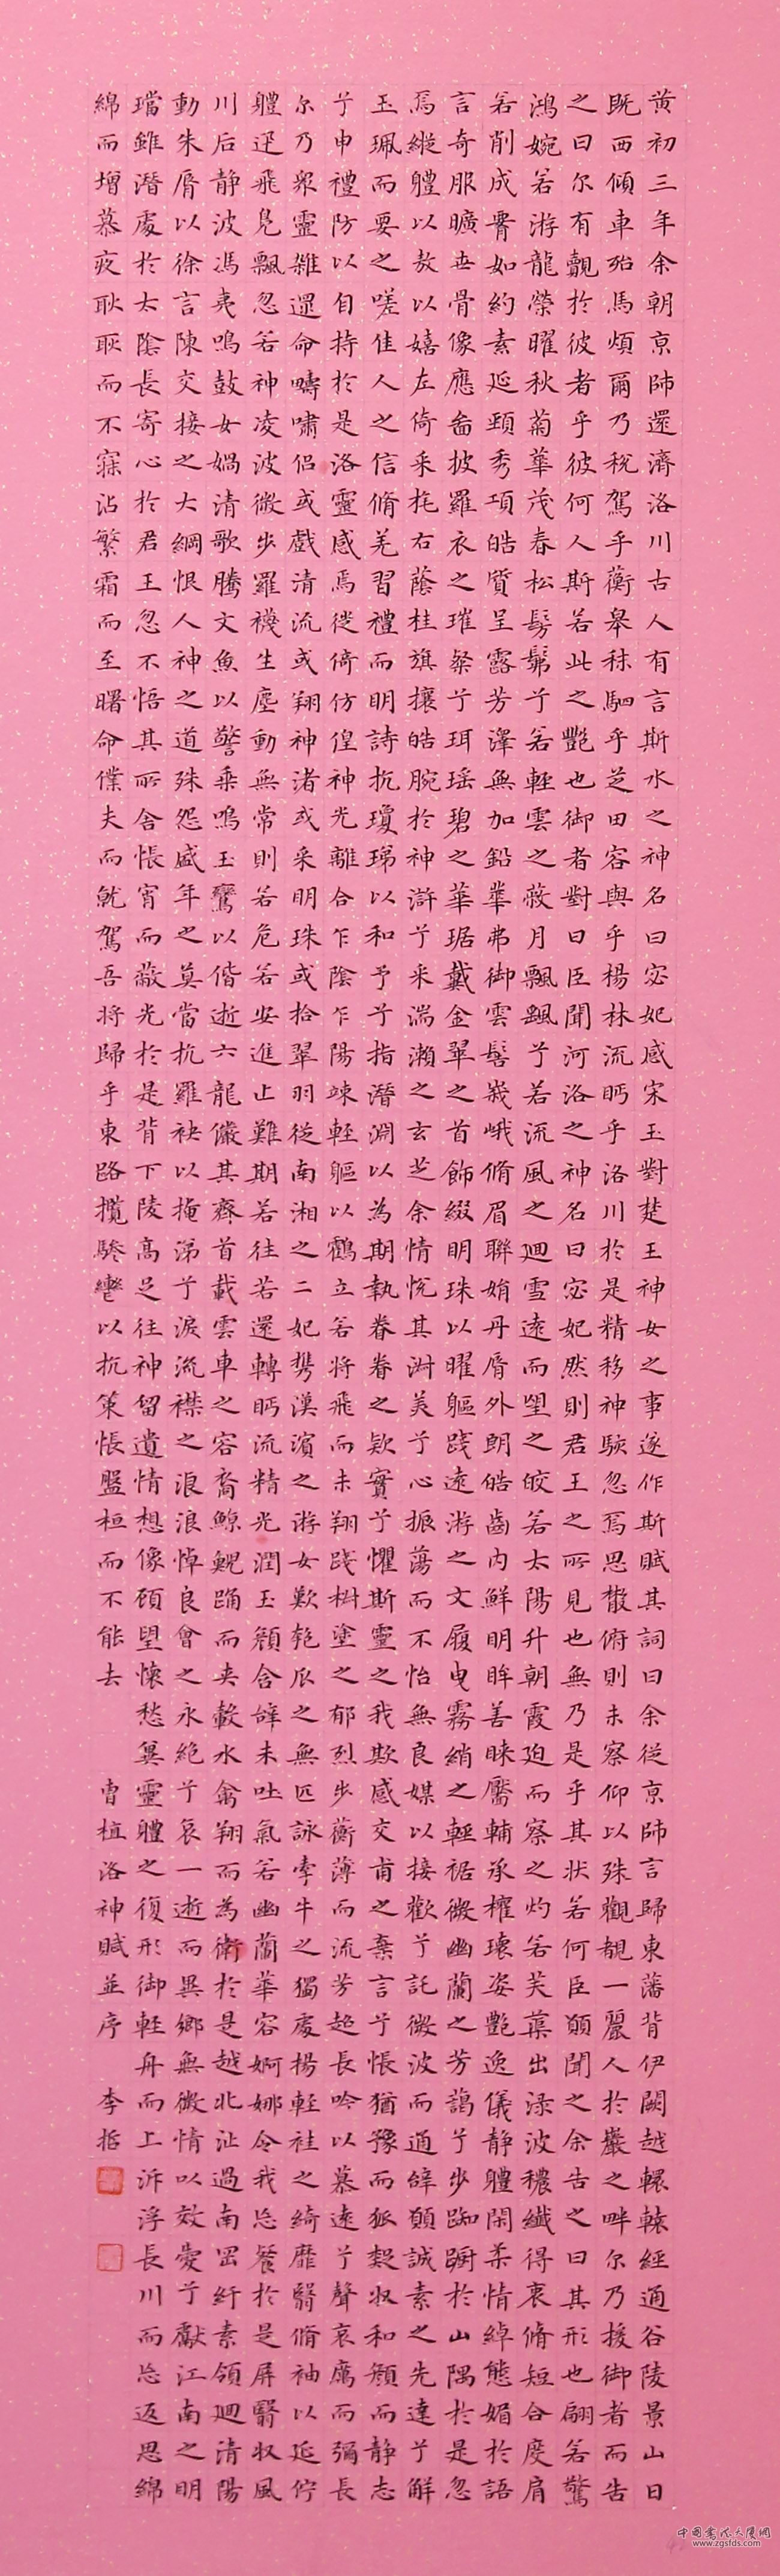 黄初三年余朝京師還濟洛川古人有言斯水之神名曰宓妃感宋玉對楚王神女之事遂作斯賦其詞曰余從京師言歸東藩背伊闕越轘轅經通谷陵景山日
既西傾車殆馬煩爾乃稅駕乎蘅皋秣駟乎芝田容與乎楊林流眄乎洛川於是精移神駭忽焉思散俯則未察仰以殊觀覩一麗人於巖之畔尔乃援御者而告
之曰尔有覿於彼者乎彼何人斯若此之艷也御者對曰臣聞河洛之神名曰宓妃然則君王之所見也無乃是乎其狀若何臣願聞之余告之曰其形也翩若驚
鴻婉若游龍榮曜秋菊華茂春松髣髴兮若輕雲之蔽月飄飖兮若流風之迴雪遠而望之皎若太陽升朝霞迫而察之灼若芙蕖出淥波穠纖得衷脩短合度肩
若削成腰如約素延頸秀項皓質呈露芳澤無加鉛華弗御雲髻峩峨脩眉聯娟丹脣外朗皓齒內鮮明眸善睞靨輔承權瓌姿艷逸儀静軆閑柔情綽態媚於語
言奇服曠世骨像應圖披羅衣之璀粲兮珥瑶碧之華琚戴金翠之首飾綴明珠以曜軀踐遠游之文履曳霧綃之輕裾微幽蘭之芳藹兮步踟躕於山隅於是忽
焉縱軆以敖以嬉左倚采旄右蔭桂旗攘皓腕於神滸兮采湍瀨之玄芝余情悅其淑美兮心振蕩而不怡無良媒以接歡兮託微波而通辭願誠素之先達兮解
玉珮而要之嗟佳人之信脩羌習禮而明詩抗瓊珶以和予兮指潛淵以為期執眷眷之款實兮懼斯靈之我欺感交甫之棄言兮悵猶豫而狐疑收和顏而静志
兮申禮防以自持於是洛靈感焉徙倚仿偟神光離合乍陰乍陽竦輕軀以鶴立若將飛而未翔踐椒塗之郁烈步蘅薄而流芳超長吟以慕遠兮聲哀厲而彌長
尔乃眾靈雜遝命疇嘯侶或戲清流或翔神渚或采明珠或拾翠羽從南湘之二妃攜漢濱之游女歎匏瓜之無匹詠牽牛之獨處揚輕袿之綺靡翳脩袖以延佇
軆迅飛鳧飄忽若神凌波微步羅襪生塵動無常則若危若安進止難期若往若還轉眄流精光潤玉顏含辭未吐氣若幽蘭華容婀娜令我忘餐於是屏翳收風
川后静波馮夷鳴鼓女媧清歌騰文魚以警乘鳴玉鸞以偕逝六龍儼其齊首載雲車之容裔鯨鯢踊而夾轂水禽翔而為衛於是越北沚過南岡紆素領迴清陽
動朱脣以徐言陳交接之大綱恨人神之道殊怨盛年之莫當抗羅袂以掩涕兮淚流襟之浪浪悼良會之永絕兮哀一逝而異鄉無微情以效愛兮獻江南之明
璫雖潛處於太陰長寄心於君王忽不悟其所舍悵宵而蔽光於是背下陵高足往神留遺情想像顧望懷愁冀靈軆之復形御輕舟而上泝浮長川而忘返思綿
綿而增慕夜耿耿而不寐沾繁霜而至曙命僕夫而就駕吾將歸乎東路攬騑轡以抗策悵盤桓而不能去 曹植洛神賦並序 李哲
中國書法大廈網
www.zgsfds.com